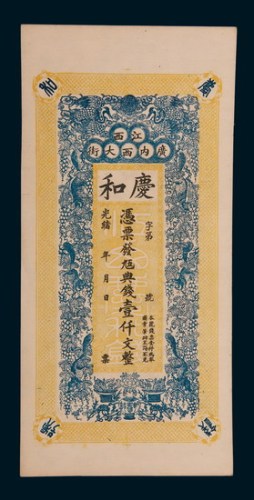 江西
廣内西大街
慶和
字第 號
憑票發兌典錢壹仟文整
光緒 年 月 日 票